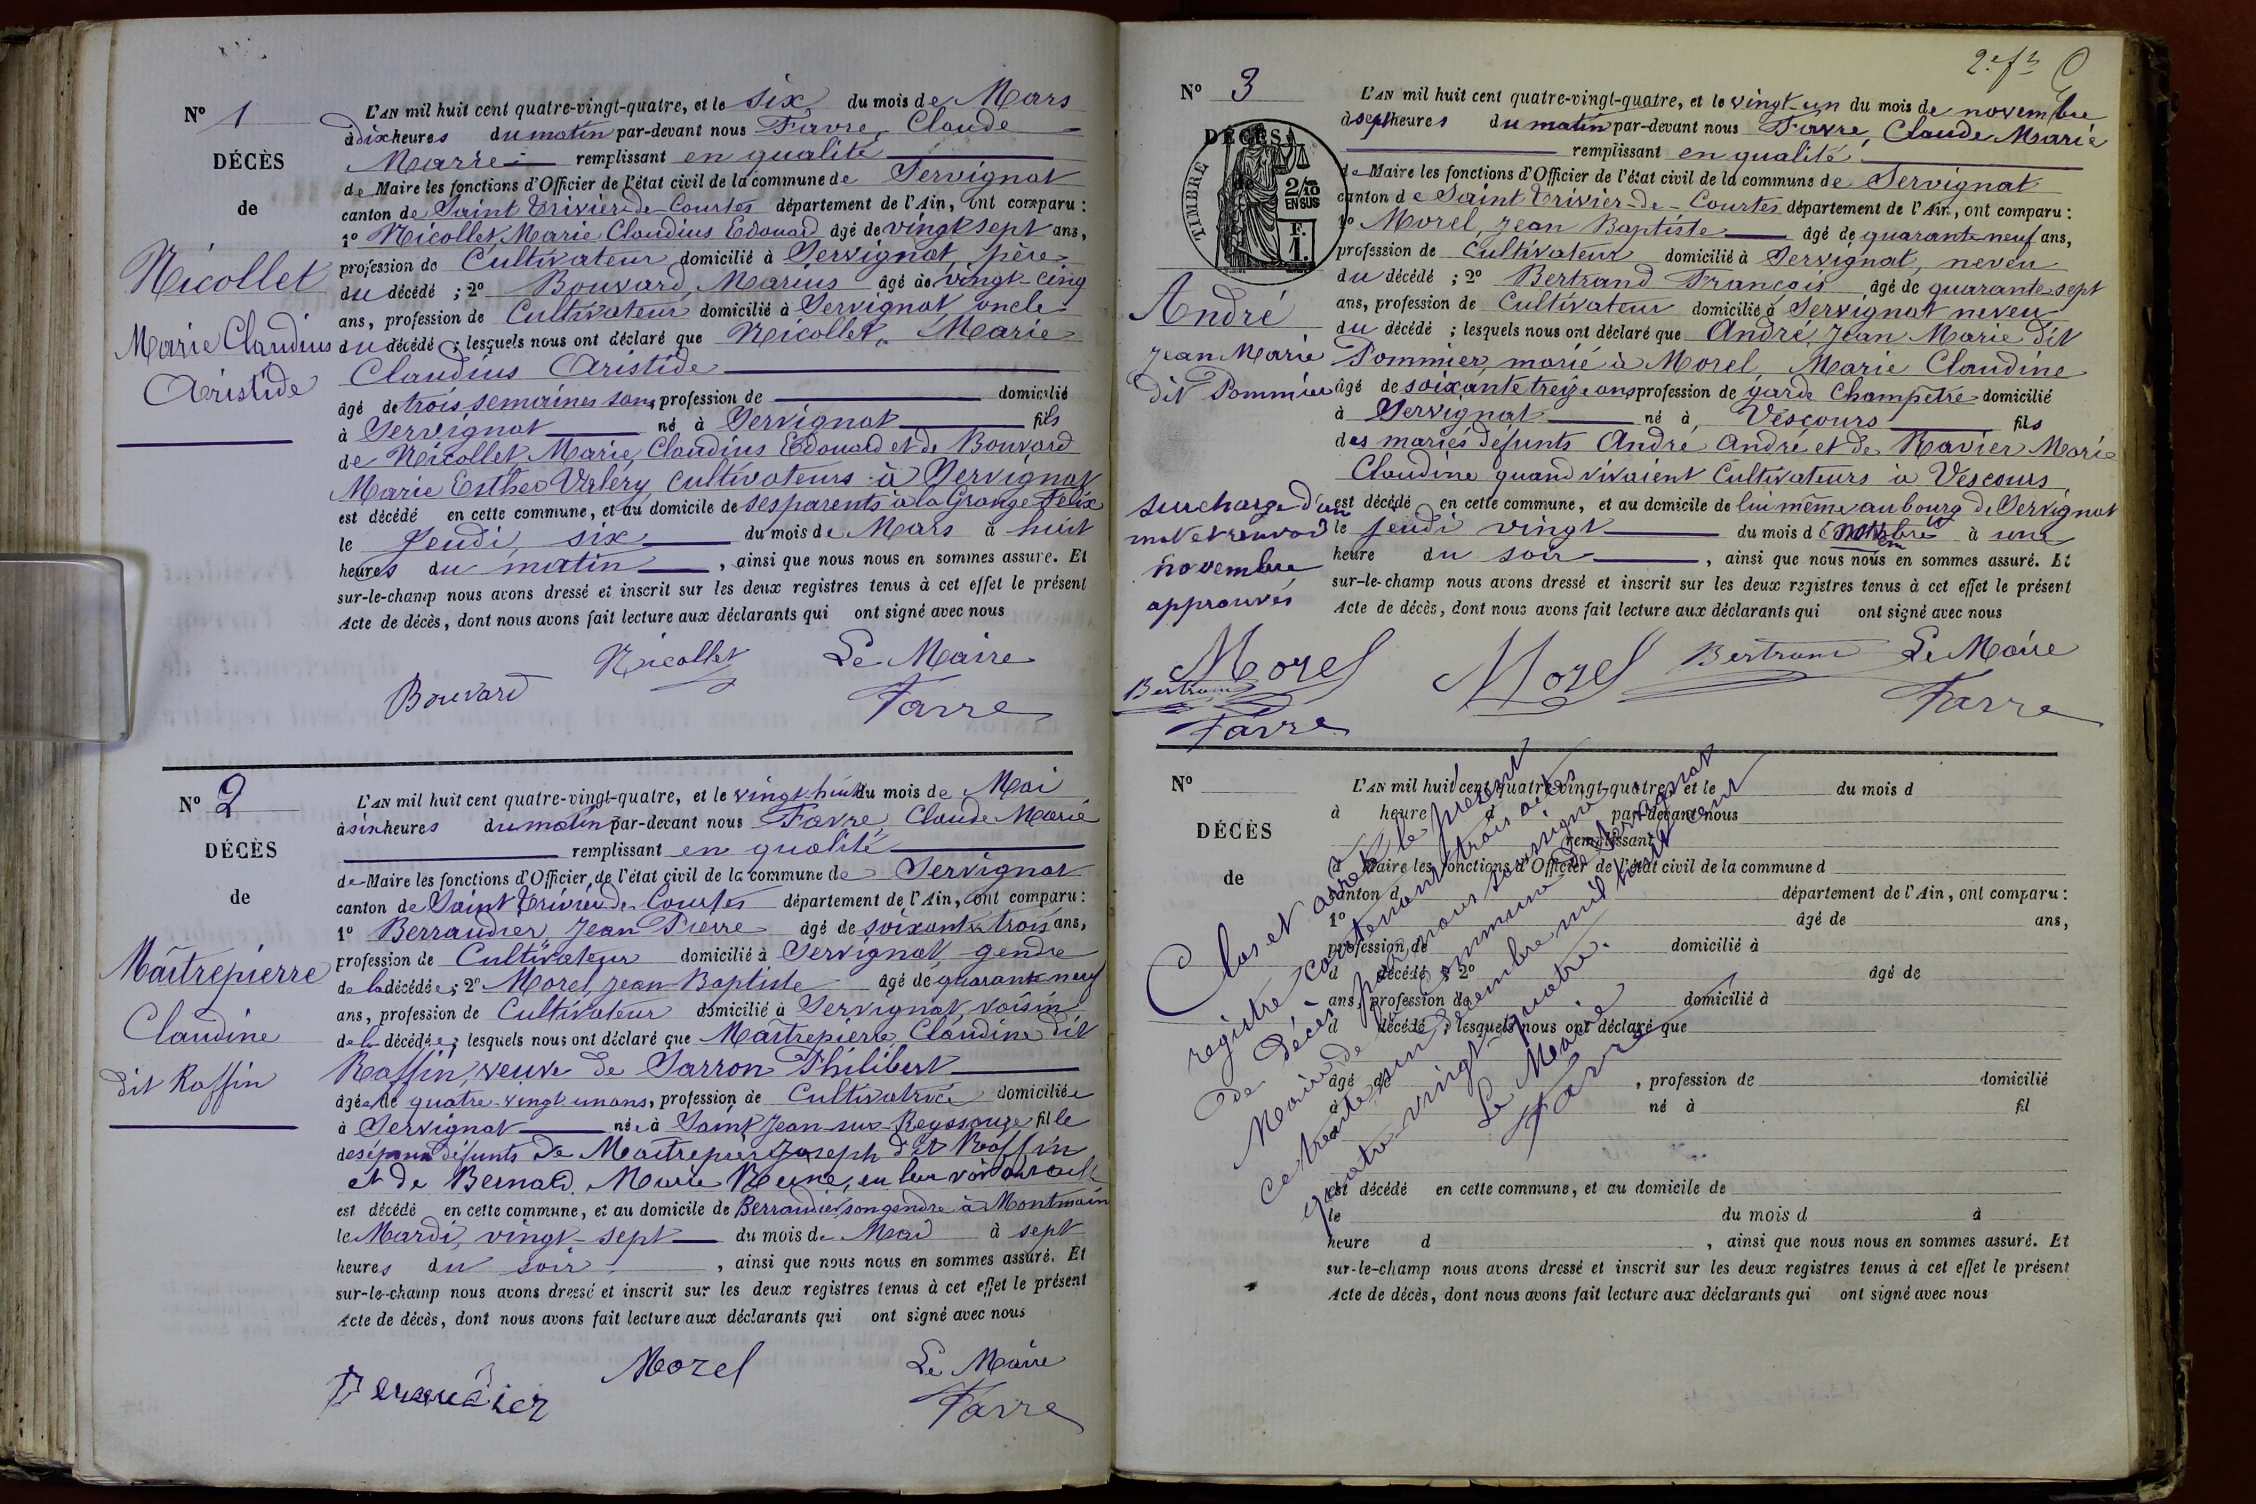 Nº 1
DÉCÈS
de
Nicollet
Marie Claudius
Aristide
L'AN mil huit cent quatre-vingt-quatre, et le six du mois de Mars
à dix heures du matin par-devant nous Favre, Claude
Marie remplissant en qualité
de Maire les fonctions d'Officier de l'état civil de la commune de Servignat
canton de Saint Trivier-de-Courtes département de l'Ain, ont comparu :
1º Nicollet Marie Claudius Edouard âgé de vingt sept ans,
profession de Cultivateur domicilié à Servignat, père
du décédé ; 2º Bouvard, Marius âgé de vingt-cinq
ans, profession de Cultivateur domicilié à Servignat oncle
du décédé ; lesquels nous ont déclaré que Nicollet, Marie
Claudius Aristide
âgé de trois semaines sans profession de domicilié
à Servignat né à Servignat fils
de Nicollet Marie, Claudius Edouard et de Bouvard
Marie Esther Valéry cultivateurs à Servignat
est décédé en cette commune, et au domicile de ses parents à la Grange Félix
le Jeudi, six du mois de Mars à huit
heures du matin, ainsi que nous nous en sommes assuré. Et
sur-le-champ nous avons dressé et inscrit sur les deux registres tenus à cet effet le présent
Acte de décès, dont nous avons fait lecture aux déclarants qui ont signé avec nous
Nicollet Le Maire
Bouvard Favre
Nº 2
DÉCÈS
de
Maîtrepierre
Claudine
dit Raffin
L'AN mil huit cent quatre-vingt-quatre, et le vingt-huit du mois de Mai
à six heures du matin par-devant nous Favre, Claude Marie
remplissant en qualité
de Maire les fonctions d'Officier de l'état civil de la commune de Servignat
canton de Saint Trivier de Courtes département de l'Ain, ont comparu :
1º Berraudier, Jean Pierre âgé de soixante trois ans,
profession de Cultivateur domicilié à Servignat, gendre
de la décédée ; 2º Morel, Jean-Baptiste âgé de quarante neuf
ans, profession de Cultivateur domicilié à Servignat, voisin
de la décédée ; lesquels nous ont déclaré que Maîtrepierre, Claudine dit
Raffin, veuve de Sarron Philibert
âgée de quatre-vingt un ans, profession de Cultivatrice domiciliée
à Servignat née à Saint Jean-sur-Reyssouze fille
des époux défunts de Maîtrepierre Joseph dit Raffin
et de Bernard Marie Reine, en leur vivant
est décédé en cette commune, et au domicile de Berraudier, son gendre à Montmain
le Mardi, vingt-sept du mois de Mai à sept
heures du soir, ainsi que nous nous en sommes assuré. Et
sur-le-champ nous avons dressé et inscrit sur les deux registres tenus à cet effet le présent
Acte de décès, dont nous avons fait lecture aux déclarants qui ont signé avec nous
Morel Le Maire
Berraudier Favre
Nº 3
DÉCÈS
TIMBRE
2/10
EN SUS
F.
1.
André
Jean Marie
dit Pommier
L'AN mil huit cent quatre-vingt-quatre, et le vingt-un du mois de novembre
à sept heures du matin par-devant nous Favre, Claude Marie
remplissant en qualité
de Maire les fonctions d'Officier de l'état civil de la commune de Servignat
canton de Saint Trivier-de-Courtes département de l'Ain, ont comparu :
1º Morel, Jean Baptiste âgé de quarante neuf ans,
profession de Cultivateur domicilié à Servignat, neveu
du décédé ; 2º Bertrand François âgé de quarante sept
ans, profession de Cultivateur domicilié à Servignat neveu
du décédé ; lesquels nous ont déclaré que André, Jean Marie dit
Pommier, marié à Morel, Marie Claudine
âgé de soixante treize ans profession de garde champêtre domicilié
à Servignat né à Vescours fils
des mariés défunts André André et de Ravier Marie
Claudine quand vivaient Cultivateurs à Vescours
est décédé en cette commune, et au domicile de lui même au bourg de Servignat
le jeudi vingt du mois de novembre à une
heure du soir, ainsi que nous nous en sommes assuré. Et
sur-le-champ nous avons dressé et inscrit sur les deux registres tenus à cet effet le présent
Acte de décès, dont nous avons fait lecture aux déclarants qui ont signé avec nous
surcharge d'un
mot et renvoi
novembre
approuvés
Morel
Bertrand
Favre
Morel Bertrand Le Maire
Favre
Nº
DÉCÈS
de
L'AN mil huit cent quatre-vingt-quatre, et le du mois d
à heure d par-devant nous
remplissant
d Maire les fonctions d'Officier de l'état civil de la commune d
canton d département de l'Ain, ont comparu :
1º âgé de ans,
profession de domicilié à
d décédé ; 2º âgé de
ans, profession de domicilié à
d décédé ; lesquels nous ont déclaré que
âgé de , profession de domicilié
à né à fil
est décédé en cette commune, et au domicile de
le du mois d à
heure d , ainsi que nous nous en sommes assuré. Et
sur-le-champ nous avons dressé et inscrit sur les deux registres tenus à cet effet le présent
Acte de décès, dont nous avons fait lecture aux déclarants qui ont signé avec nous
Clos et arrêté le présent
registre contenant trois actes
de décès par nous soussigné
Maire de la commune de Servignat
ce trente un décembre mil huit cent
quatre-vingt-quatre.
Le Maire
Favre